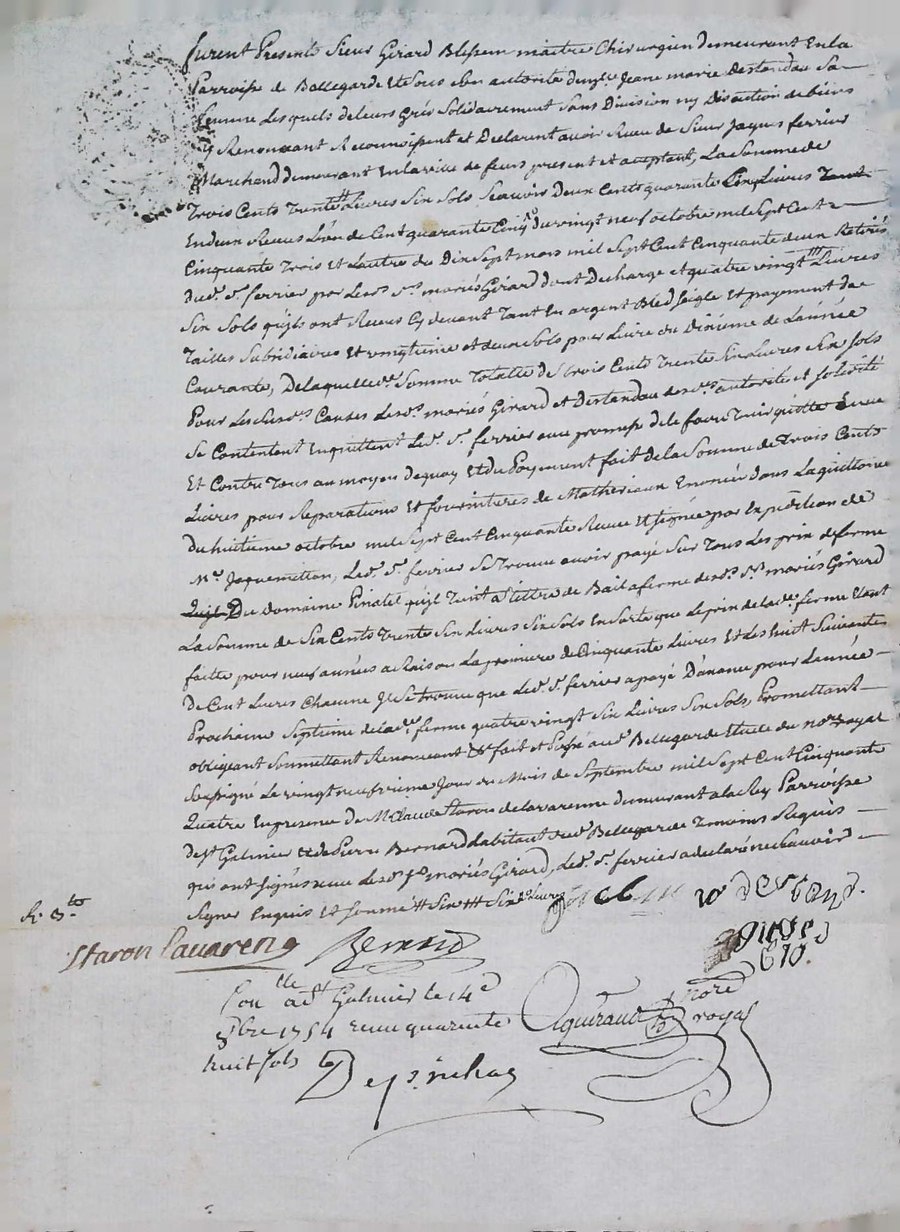 furent Presents Sieur Girard Blessein maitre Chirurgien demeurant En la
Parroisse de Bellegarde Et sous son autorité Jeane marie Destandau Sa
femme Lesquels de leurs grés Solidairement Sans Division ny Discution de biens
y Renonceant Reconnoissent et Declarent avoir Receu de Sieur Jaques ferrier
Marchand demeurant En la ville de feurs present et aceptant, La Somme de
Trois Cents Trente Livres Six Sols Scauoir Deux Cents quarante Cinq Livres
En deux Receus L'un de Cent quarante Cinq du vingt neuf octobre mil Sept Cent
Cinquante Trois Et L'autre du Dix Sept mars mil Sept Cent Cinquante deux Retirés
dud. Sr. ferrier par Lesd. Srs. mariés Girard dont Decharge et quatre vingt Livres
Six Sols qu'ils ont Receus Cy devant Tant En argent Bled Seigle Et payment de
Tailles Subsidiaires Et vingtieme et deux Sols pour Livre du Dixieme de L'année
Courante, De laquelle Somme Totalle de trois Cents Trente Six Livres Six Sols
Pour Les Causes Lesd. mariés Girard et Destandau autorité et solidité
Se Contentent En quittent Led. Sr. ferrier avec promesse de le faire Tenir quitte Envers
Et Contre Tous au moyen de quoy Et du Payement fait de la Somme de Trois Cents
Livres pour Reparations Et fournitures de Matheriaux Enoncée dans La quittance
Du huitieme octobre mil Sept Cent Cinquante Receue Et Signée par Expedition de
Me. Jaquemetton, Led. Sr. ferrier Se Trouve avoir payé Sur Tous Les prix de ferme
Du Domaine Pinatel qu'il Tient a Tittre de Bail a ferme desd. Srs. mariés Girard
La Somme de Six Cents Trente Six Livres Six Sols En Sorte que Le prix de lad. ferme Etant
faitte pour neuf années a Raison La premiere de Cinquante Livres Et Les huit Suivantes
De Cent Livres Chacune Il Se trouve que Led. Sr. ferrier a payé D'avance pour L'année
Prochaine Septieme de lad. ferme quatre vingt Six Livres Six Sols, Promettant
obligeant Soumettant Renonceant &c fait et Passé aud. Bellegarde Etude du nore. royal
Soussigné Le vingt neuvieme Jour du Mois de Septembre mil Sept Cent Cinquante
Quatre En presence de Me Claude Staron de Lavarenne demeurant a la Rey Parroisse
de St Galmier Et de Pierre Bernard habitant dud. Bellegarde Temoins Requis
qui ont Signés avec lesd. Srs. mariés Girard, Led. Sr. ferrier a declaré ne Scavoir
Signer Enquis Et Sommé Six Six Livres
Staron Lavarenne Bernard
Conlle a St Galmier le 14e
8bre 1754 receu quarante
huit sols
Aguiraud nore
royal